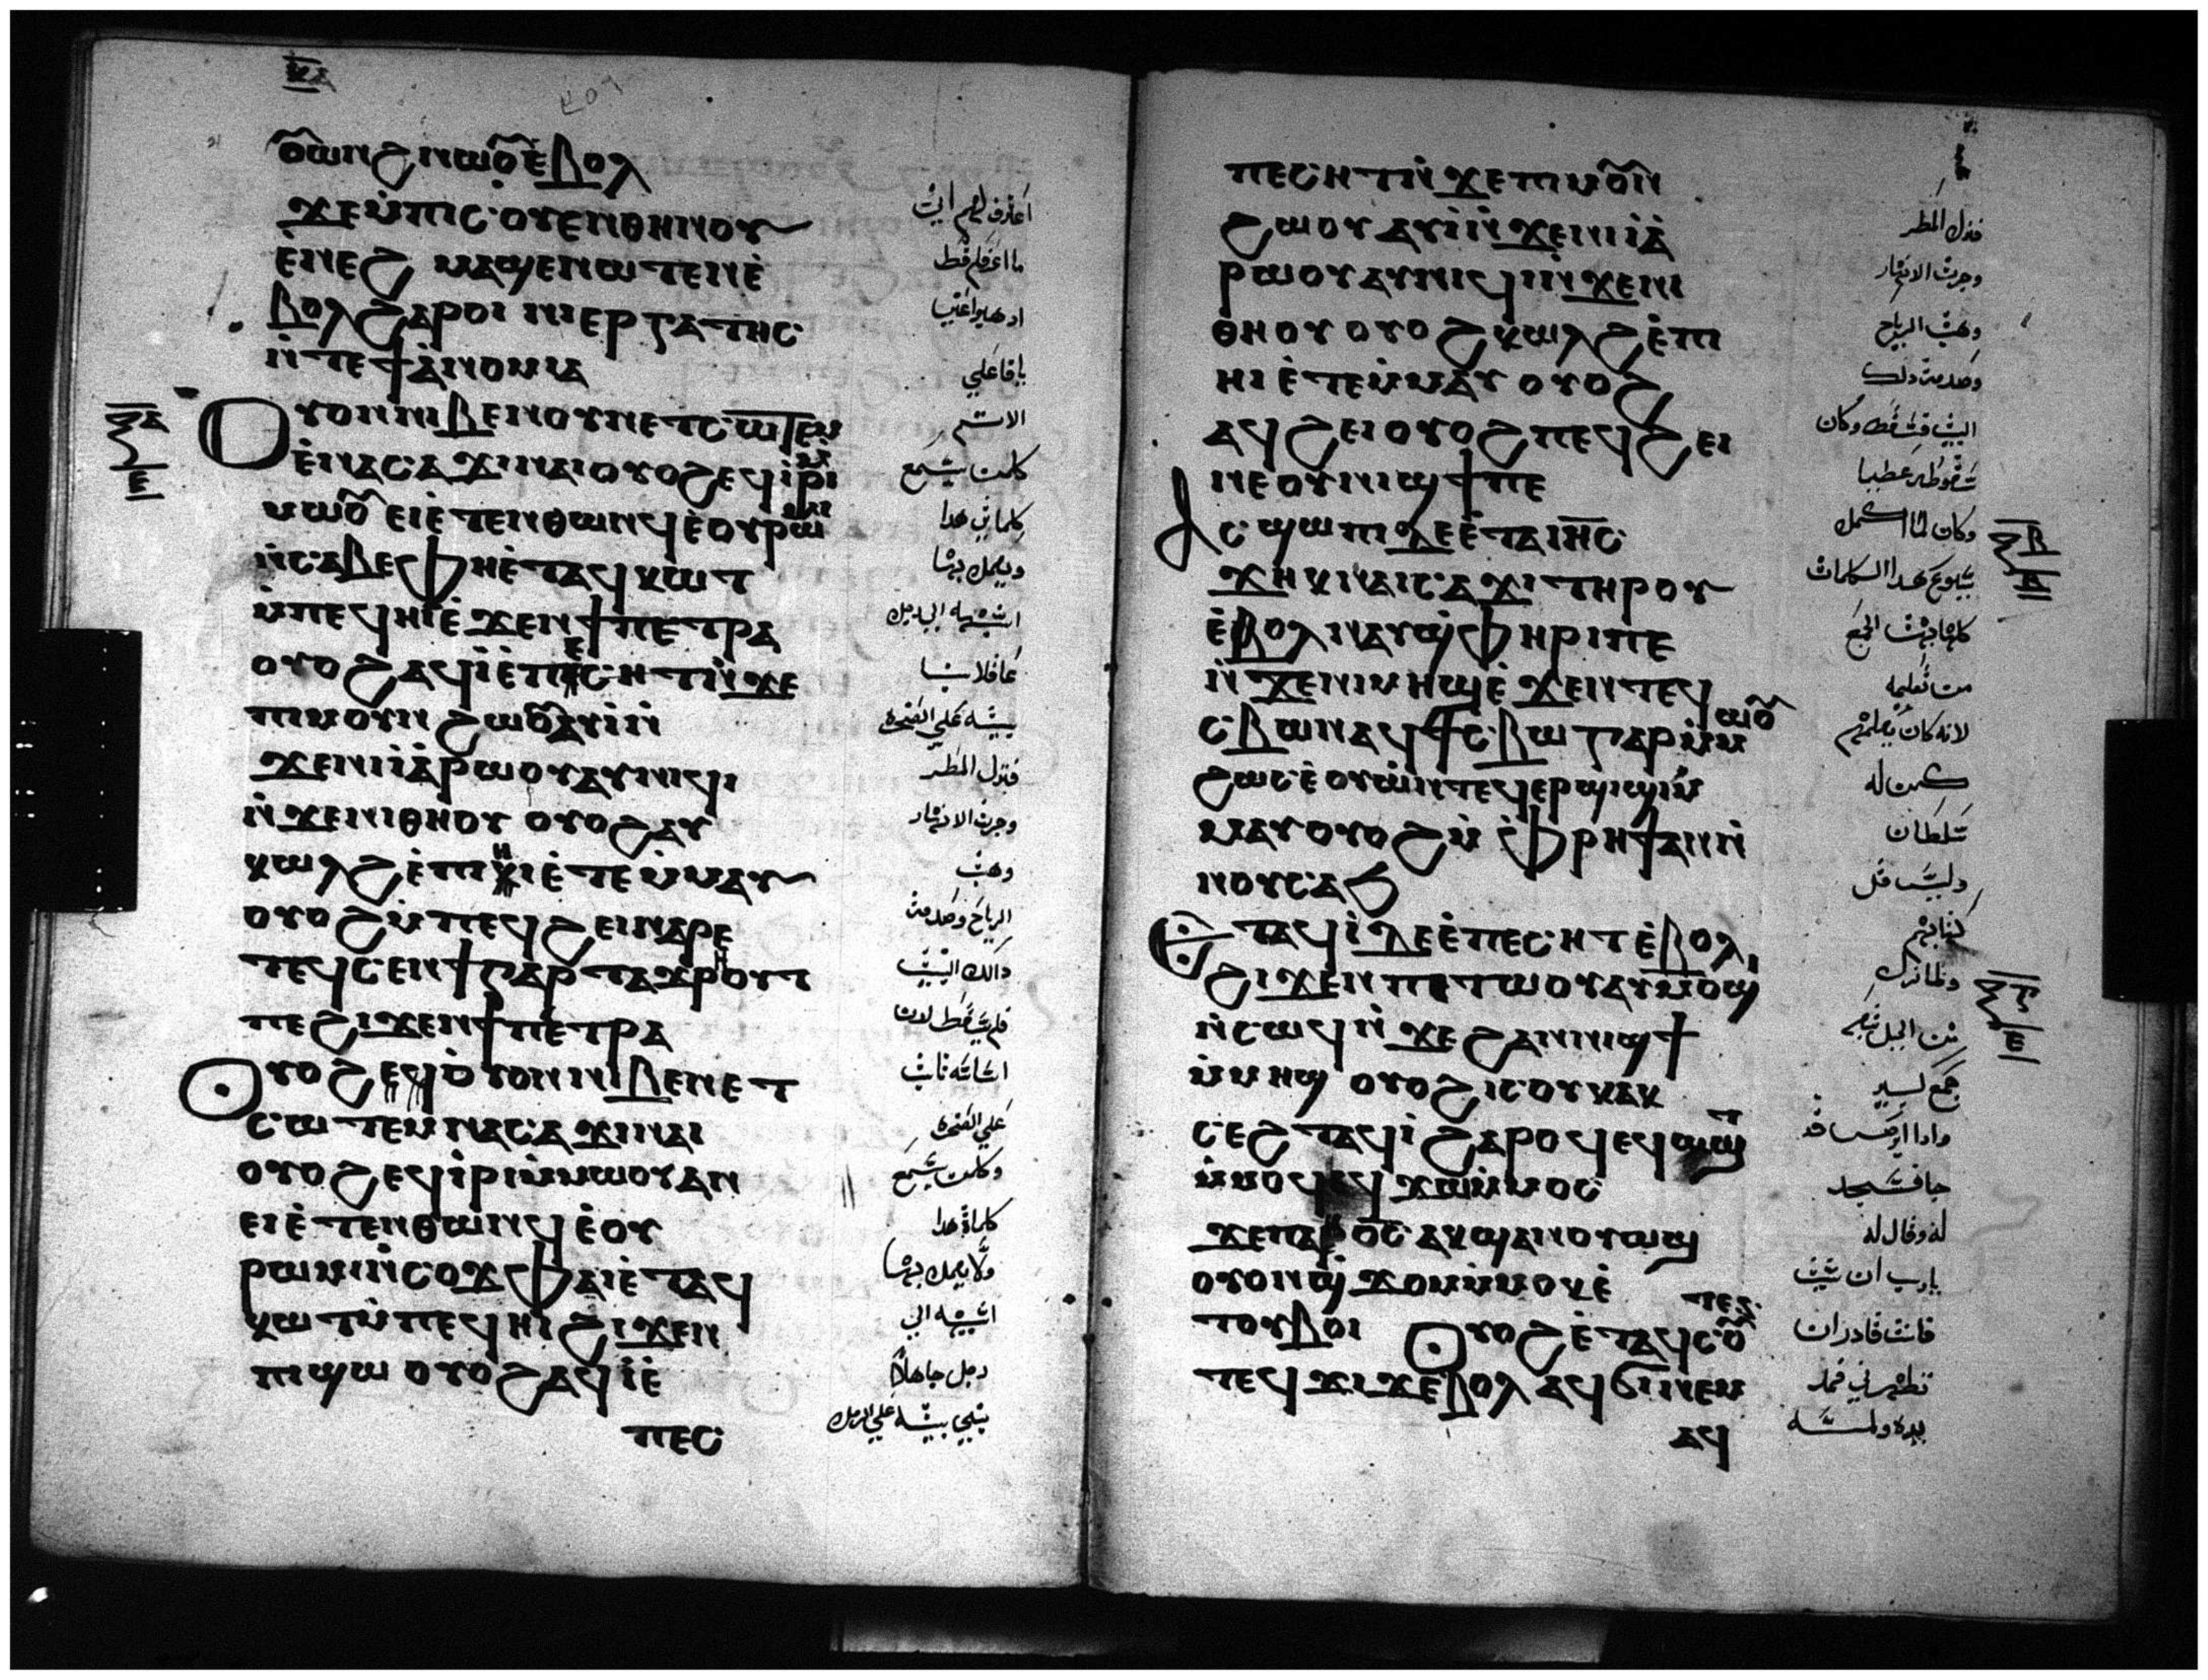 ⲟ̅ⲱⲛϩⲛⲱⲟ̅ⲉ̀ⲃⲟⲗ
ϫⲉⲙ̀ⲡⲓⲥⲟⲩⲉⲛⲑⲏⲛⲟⲩ
ⲉ̀ⲛⲉϩ ⲙⲁϣⲉⲛⲱⲧⲉⲛⲉ̀
ⲃⲟⲗϩⲁⲣⲟⲓ ⲛⲓⲉⲣⲅⲁⲧⲏⲥ
ⲛ̀ⲧⲉϯⲁ̀ⲛⲟⲙⲓⲁ
ⲟⲩⲟⲛⲛⲓⲃⲉⲛⲟⲩⲛⲉⲧⲥⲱⲧⲉⲙ
ⲉ̀ⲛⲁⲥⲁϫⲓⲛⲁⲓⲟⲩⲟϩⲉϥⲓ̀ⲣⲓⲙ̀
ⲙⲱⲟ̅ ⲉⲓⲉ̀ⲧⲉⲛⲑⲱⲛϥⲉ̀ⲟⲩⲣⲱⲙⲓ
ⲛ̀ⲥⲁⲃⲉⲫⲏⲉ̀ⲧⲁϥⲕⲱⲧ
ⲙ̀ⲡⲉϥⲏⲓⲉ̀ϫⲉⲛϯⲡⲉⲧⲣⲁ
ⲟⲩⲟϩⲁϥⲓ̀ⲉ̀ⲡⲉⲥⲏⲧⲛ̀ϫⲉ
ⲡⲓⲙⲟⲩⲛϩⲱⲟ̅ⲁⲩⲓ̀ⲛ̀
ϫⲉⲛⲓⲓ̀ⲁ̀ⲣⲱⲟⲩⲁⲩⲛⲓϥⲓ
ⲛ̀ϫⲉⲛⲓⲑⲏⲟⲩ ⲟⲩⲟϩⲁⲩ
ⲕⲱⲗϩⲉ̀ⲡⲓⲏⲓⲉ̀ⲧⲉⲙ̀ⲙⲁⲩ
ⲟⲩⲟϩⲙ̀ⲡⲉϥϩⲉⲓⲛⲁⲣⲉ
ⲧⲉϥⲥⲉⲛϯⲅⲁⲣⲧⲁϫⲣⲏⲟⲩⲧ
ⲡⲉϩⲓϫⲉⲛϯⲡⲉⲧⲣⲁ
ⲟⲩⲟϩ ⲟⲩⲟⲛⲛⲓⲃⲉⲛⲉⲧ
ⲥⲱⲧⲉⲙⲛⲁⲥⲁϫⲓⲛⲁⲓ
ⲟⲩⲟϩⲉϥⲓ̀ⲣⲓⲙ̀ⲙⲱⲟⲩⲁⲛ
ⲉⲓⲉ̀ⲧⲉⲛⲑⲱⲛϥⲉ̀ⲟⲩ
ⲣⲱⲙⲓⲛ̀ⲥⲟϫⲫⲁⲓⲉ̀ⲧⲁϥ
ⲕⲱⲧⲙ̀ⲡⲉϥⲏⲓϩⲓϫⲉⲛ
ⲡⲓϣⲱ ⲟⲩⲟϩⲁϥⲓ̀ⲉ̀
ⲡⲉⲥ
اعترف لهم
ما اعرفكم قط
اذهبوا عني
يا فاعلي
الاثم
كلمن يسمع
كلماتي هدا
ويعمل بها
عاقلا
بيته علي الصخره
فنزل المطر
وجرت الانهار
وهبت
الرياح وصدمت
دالك البيت
فلم يسقط لان
اساسه ثابت
علي الصخره
وكلمن يسمع
كلماتي هدا
ولا يعمل بها
رجل جاهلا
بني بيته علي الرمل
ⲡⲉⲥⲏⲧⲛ̀ϫⲉⲡⲓⲙⲟ̅ⲛ
ϩⲱⲟⲩⲁⲩⲓ̀ⲛ̀ϫⲉⲛⲓⲓ̀ⲁ̀
ⲣⲱⲟⲩⲁⲩⲛⲓϥⲓⲛ̀ϫⲉⲛⲓ
ⲑⲏⲟⲩⲟⲩⲟϩⲕⲱⲗϩⲉ̀ⲡⲓ
ⲏⲓⲉ̀ⲧⲉⲙ̀ⲙⲁⲩ ⲟⲩⲟϩ
ⲁϥϩⲉⲓⲟⲩⲟϩⲡⲉϥϩⲉⲓ
ⲛⲉⲟⲩⲛⲓϣϯⲡⲉ
ⲁⲥϣⲱⲡⲓⲇⲉⲉ̀ⲧⲁⲓⲏ̅ⲥ
ϫⲏⲕⲛⲁⲓⲥⲁϫⲓⲧⲏⲣⲟⲩ
ⲉ̀ⲃⲟⲗⲛⲁⲩϣ̀ⲫⲏⲣⲓⲡⲉ
ⲛ̀ϫⲉⲛⲓⲙⲏϣⲉ̀ϫⲉⲛⲧⲉϥ
ⲥⲃⲱⲛⲁϥϯⲥⲃⲱⲅⲁⲣⲛ̀ⲙⲱⲟ̅
ϩⲱⲥⲉ̀ⲟⲩⲱ̀ⲛⲧⲉϥⲉⲣϣⲓϣⲓⲙ̀
ⲙⲁⲩⲟⲩⲟϩⲙ̀ⲫ̀ⲣⲏϯⲁⲛⲛ̀
ⲛⲟⲩⲥⲁϧ
ⲉⲧⲁϥⲓ̀ⲇⲉⲉ̀ⲡⲉⲥⲏⲧⲉ̀ⲃⲟⲗ
ϩⲓϫⲉⲛⲡⲓⲧⲱⲟⲩⲁⲩⲙⲟϣⲓ
ⲛ̀ⲥⲱϥⲛ̀ϫⲉϩⲁⲛⲛⲓϣϯ
ⲙ̀ⲙⲏϣ ⲟⲩⲟϩⲓⲥⲟⲩⲕⲁⲕ
ⲥⲉϩⲧⲁϥⲓ̀ϩⲁⲣⲟϥⲉϥⲟⲩⲱϣⲧ
ⲙ̀ⲙⲟϥⲉϥϫⲱⲙ̀ⲙⲟⲥ
ϫⲉⲡⲁⲟ̅ⲥ̅ ⲁⲕϣⲁⲛⲟⲩⲱϣ
ⲟⲩⲟⲛϣ̀ϫⲟⲙⲙ̀ⲙⲟⲕⲉ̀
ⲧⲟⲩⲃⲟⲓ ⲟⲩⲟϩⲉ̀ⲧⲁϥⲥⲟ̅ⲧⲉⲛ
ⲧⲉϥϫⲓϫⲉⲃⲟⲗⲁϥϭⲓⲛⲉⲙ
ⲁϥ
فنزل المطر
وجرت الانهار
وهبت الرياح
وصدمت دلك
البيت فسقط وكان
سقوطه عظيما
وكان لما اكمل
يسوع هدا الكلمات
كلها بهت الجمع
من تعليمه
لانه كان يعلمهم
كمن له
سلطان
وليس مثل
كتابهم
ولما نزل
من الجبل تبعه
جمع كبير
وادا ابرص قد
جا فسجد
له وقال له
يا رب ان شيت
فانت قادر ان
تطهرني فمد
يده ولمسه